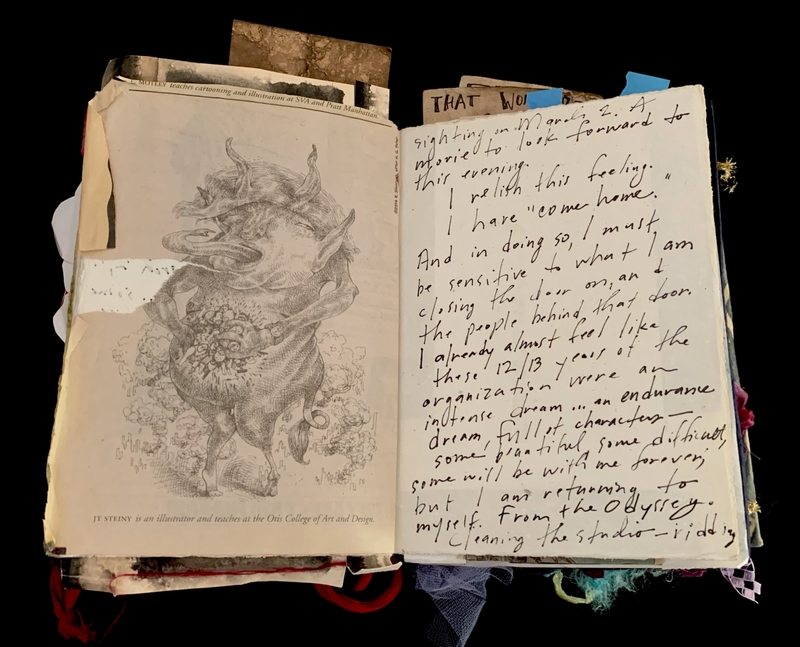 L. MOTLEY teaches cartooning and illustration at SVA and Pratt Manhattan.
JT STEINY is an illustrator and teaches at the Otis College of Art and Design.
THAT WO
sighting on March 2. A
movie to look forward to
this evening.
I relish this feeling.
I have "come home."
And in doing so, I must
be sensitive to what I am
closing the door on, and
the people behind that door.
I already almost feel like
these 12/13 years of the
organization were an
intense dream... an endurance
dream, full of characters—
some beautiful some difficult,
some will be with me forever;
but I am returning to
myself. From the Odyssey.
Cleaning the studio—ridding